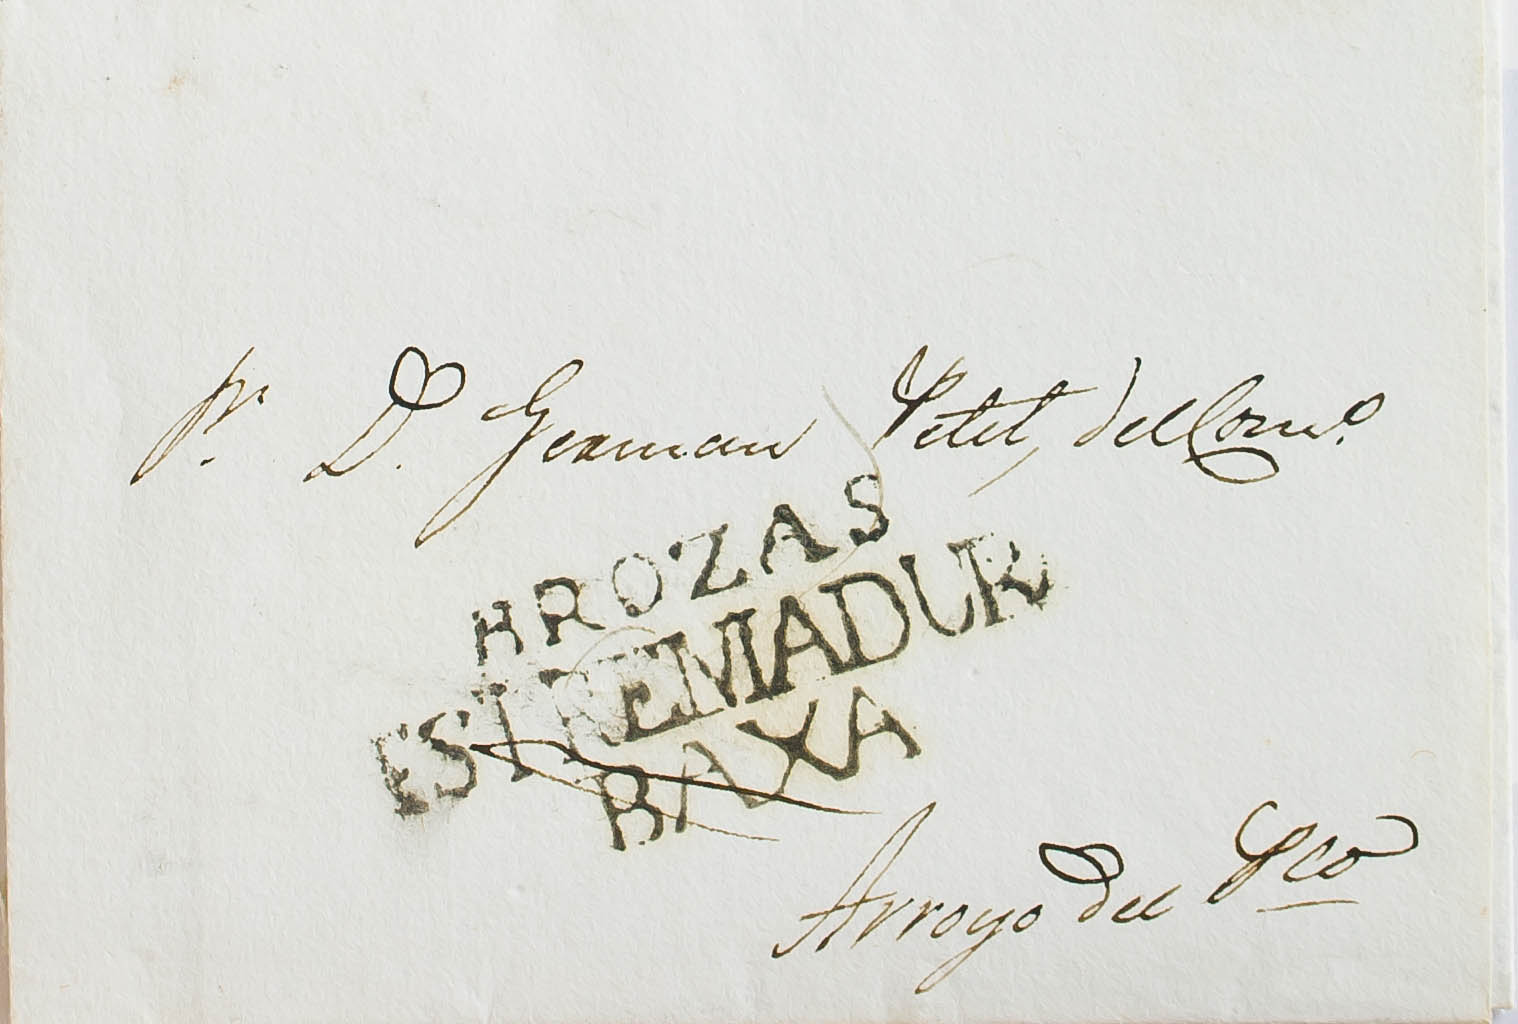 Pr. D. German Petit, del Comº.
BROZAS
ESTREMADUR
BAXA
Arroyo del Pco